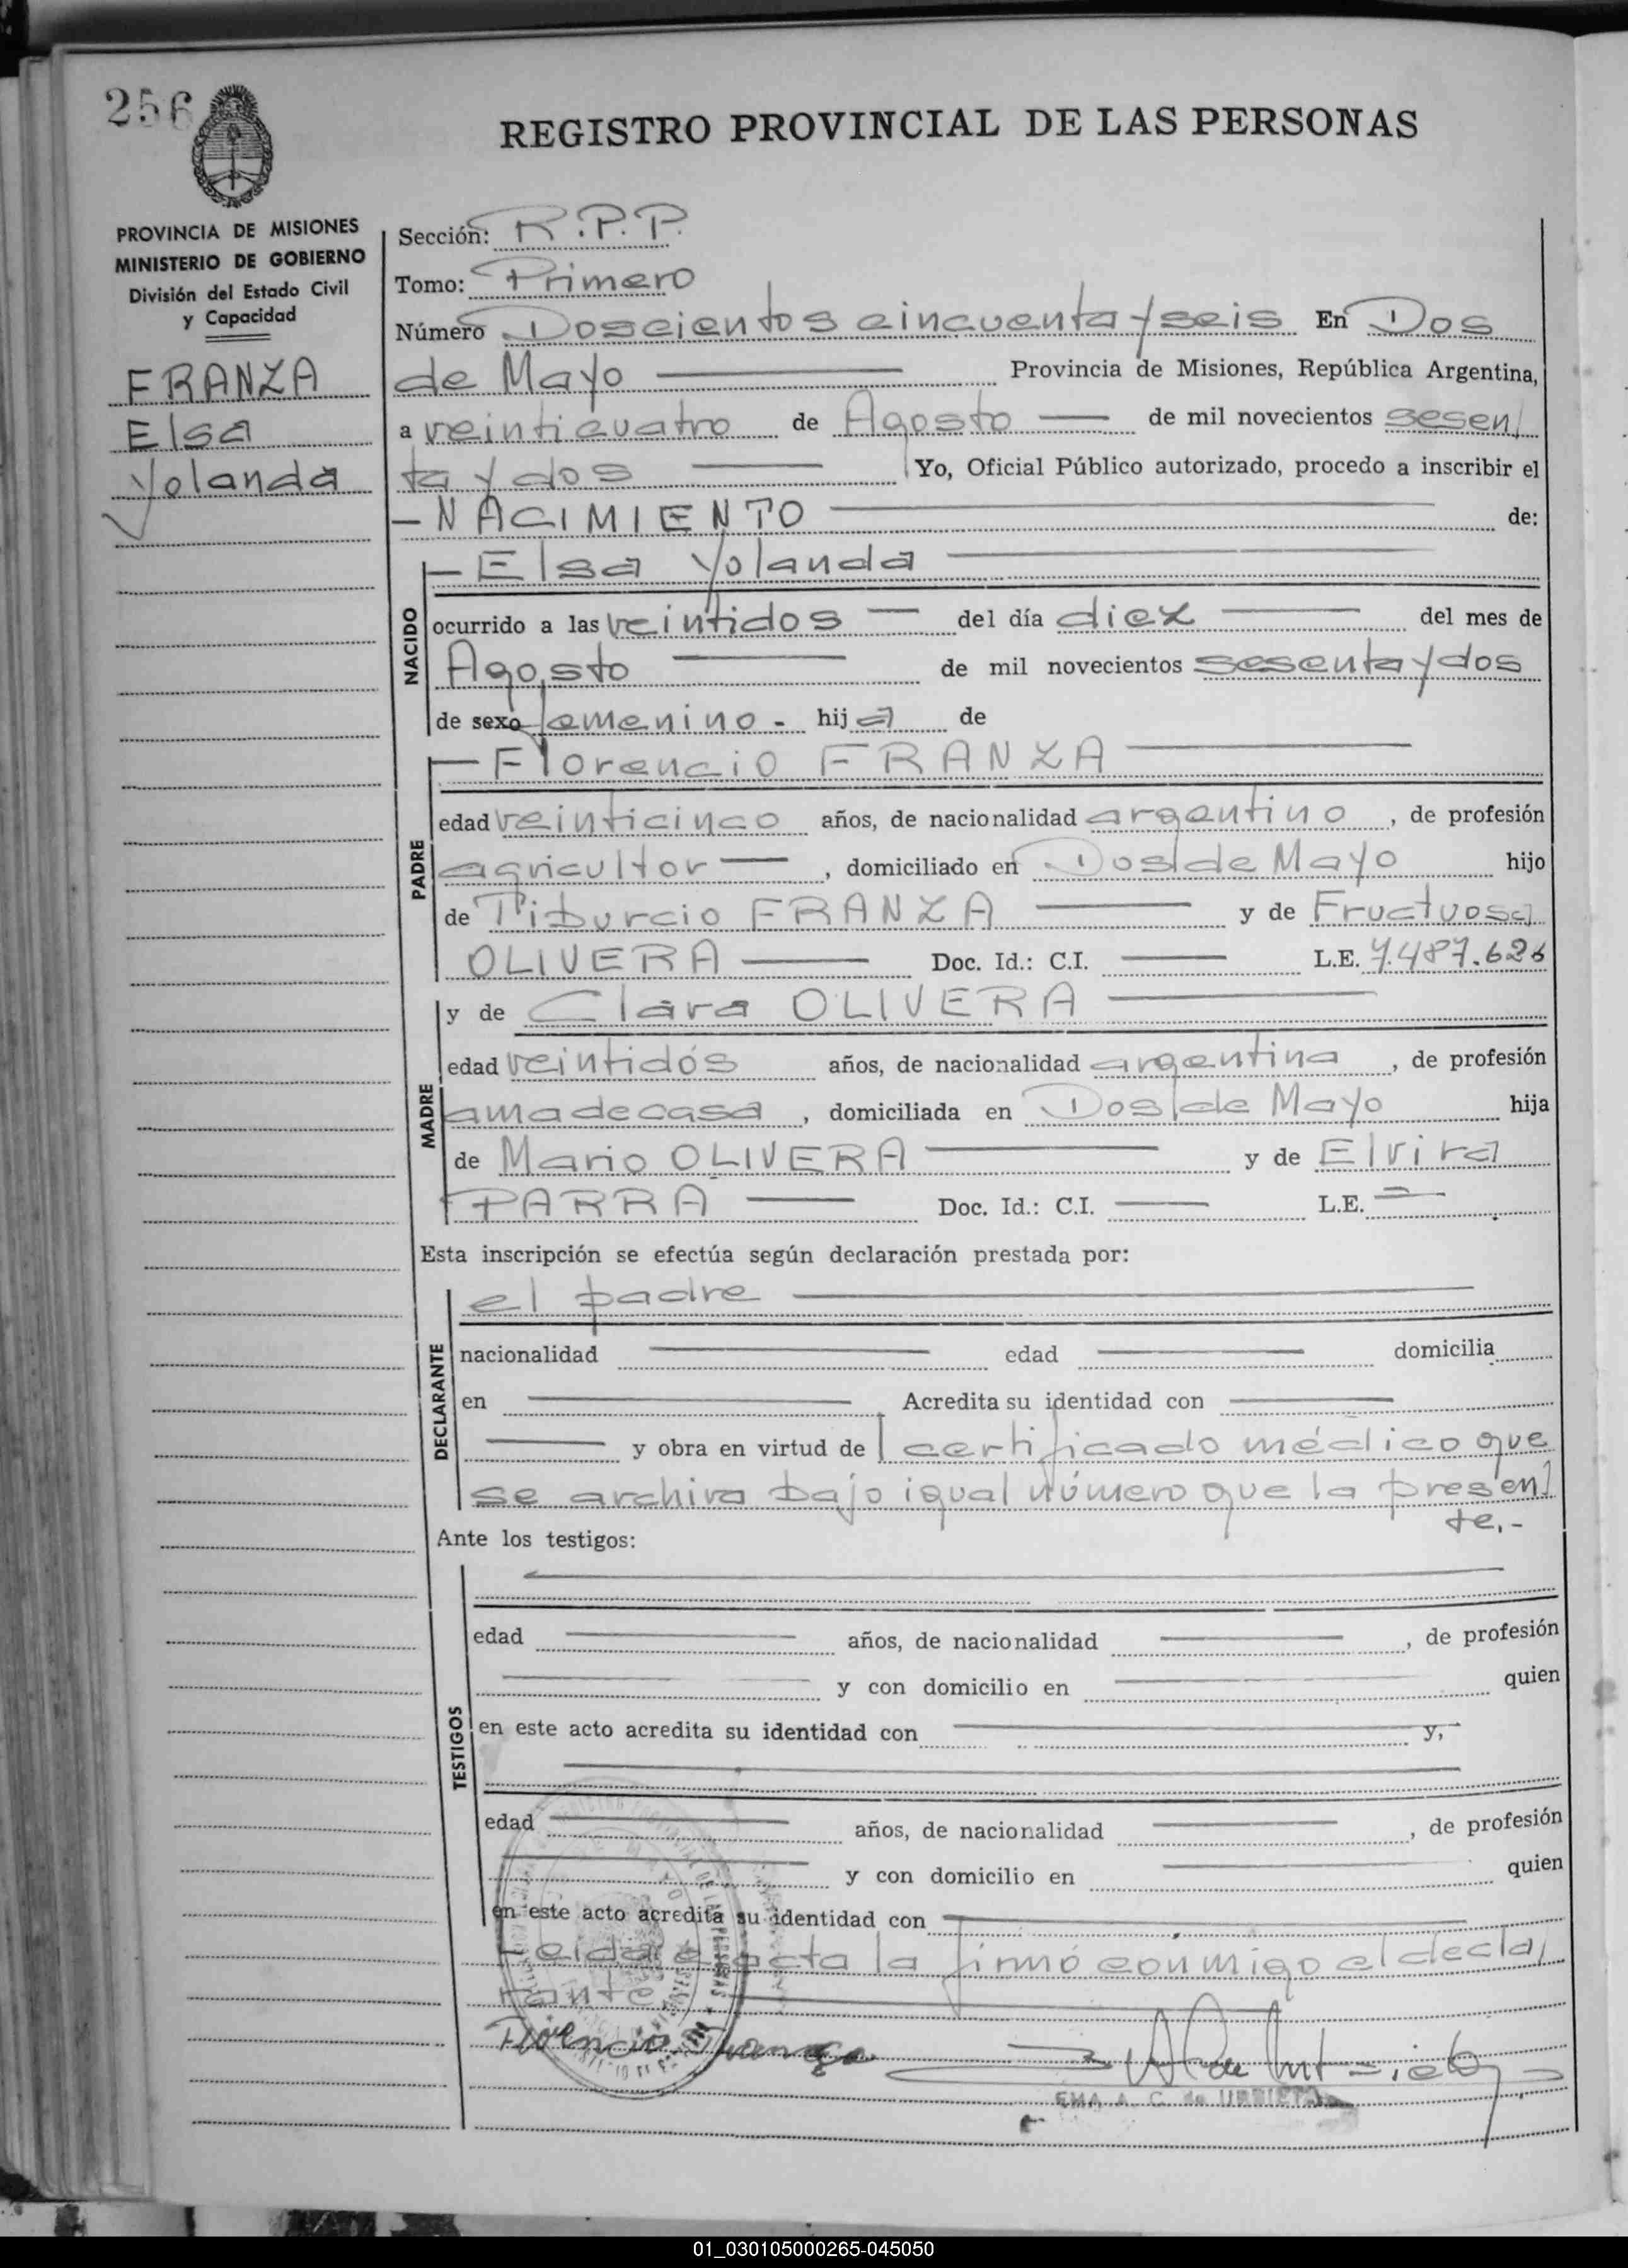 256
REGISTRO PROVINCIAL DE LAS PERSONAS
PROVINCIA DE MISIONES
MINISTERIO DE GOBIERNO
División del Estado Civil
y Capacidad
FRANZA
Elsa
Yolanda
Sección: R.P.P.
Tomo: Primero
Número Doscientos cincuenta y seis En Dos
de Mayo Provincia de Misiones, República Argentina,
a veinticuatro de Agosto de mil novecientos sesen/
ta y dos Yo, Oficial Público autorizado, procedo a inscribir el
- NACIMIENTO de:
NACIDO
- Elsa Yolanda
ocurrido a las veintidos del día diez del mes de
Agosto de mil novecientos sesenta y dos
de sexo femenino.- hija de
PADRE
- Florencio FRANZA
edad veinticinco años, de nacionalidad argentino, de profesión
agricultor, domiciliado en Dos de Mayo hijo
de Tiburcio FRANZA y de Fructuosa
OLIVERA Doc. Id.: C.I. L.E. 7.487.626
MADRE
y de Clara OLIVERA
edad veintidós años, de nacionalidad argentina, de profesión
ama de casa, domiciliada en Dos de Mayo hija
de Mario OLIVERA y de Elvira
PARRA Doc. Id.: C.I. L.E.
Esta inscripción se efectúa según declaración prestada por:
DECLARANTE
el padre
nacionalidad edad domicilia
en Acredita su identidad con
y obra en virtud de certificado médico que
se archiva bajo igual número que la presen/
te.-
Ante los testigos:
TESTIGOS
edad años, de nacionalidad , de profesión
y con domicilio en quien
en este acto acredita su identidad con y,
edad años, de nacionalidad , de profesión
y con domicilio en quien
en este acto acredita su identidad con
Leida el acta la firmó conmigo el decla/
rante
Florencio Franza
EMA A. C. de URBIETA
01_030105000265-045050